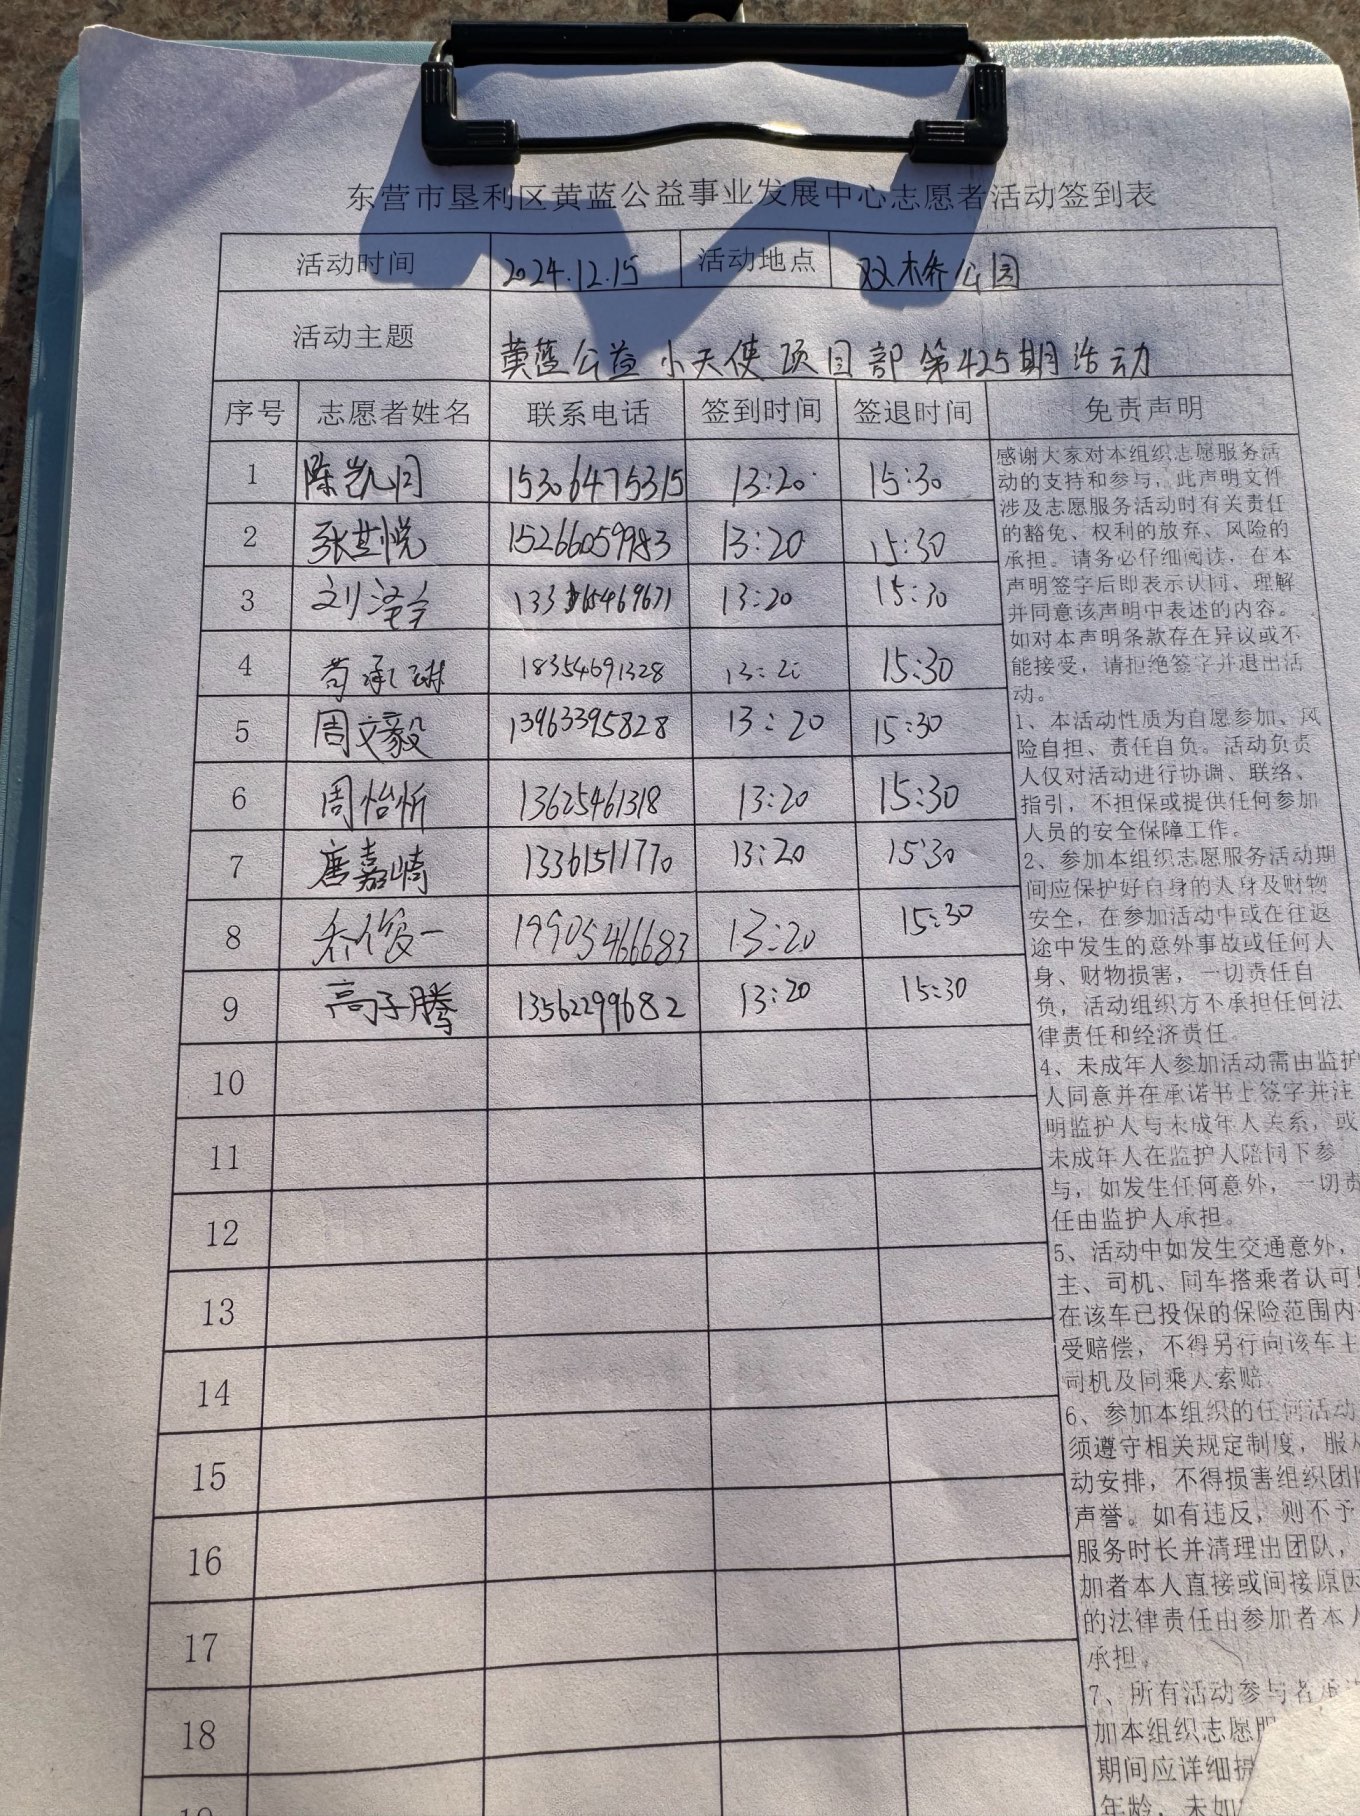 东营市垦利区黄蓝公益事业发展中心志愿者活动签到表
活动时间 2024.12.15 活动地点 双木桥公园
活动主题 黄蓝公益小天使项目部第425期活动
序号 志愿者姓名 联系电话 签到时间 签退时间 免责声明
1 陈凯同 15306475315 13:20 15:30
2 张芸悦 15266059983 13:20 15:30
3 刘泽 13:20 15:30
4 苟承琳 18354691328 13:20 15:30
5 周文毅 13963395828 13:20 15:30
6 周怡忻 13625461318 13:20 15:30
7 唐嘉崎 13361511770 13:20 15:30
8 乔俊一 19905466683 13:20 15:30
9 高子腾 13562299682 13:20 15:30
10
11
12
13
14
15
16
17
18
19
感谢大家对本组织志愿服务活
动的支持和参与，此声明文件
涉及志愿服务活动时有关责任
的豁免、权利的放弃、风险的
承担。请务必仔细阅读，在本
声明签字后即表示认同、理解
并同意该声明中表述的内容。
如对本声明条款存在异议或不
能接受，请拒绝签字并退出活
动。
1、本活动性质为自愿参加、风
险自担、责任自负。活动负责
人仅对活动进行协调、联络、
指引，不担保或提供任何参加
人员的安全保障工作。
2、参加本组织志愿服务活动期
间应保护好自身的人身及财物
安全，在参加活动中或在往返
途中发生的意外事故或任何人
身、财物损害，一切责任自
负，活动组织方不承担任何法
律责任和经济责任。
4、未成年人参加活动需由监护
人同意并在承诺书上签字并注
明监护人与未成年人关系，或
未成年人在监护人陪同下参
与，如发生任何意外，一切责
任由监护人承担。
5、活动中如发生交通意外，
主、司机、同车搭乘者认可
在该车已投保的保险范围内
受赔偿，不得另行向该车主
司机及同乘人索赔
6、参加本组织的任何活动
须遵守相关规定制度，服从
动安排，不得损害组织团队
声誉。如有违反，则不予
服务时长并清理出团队，
加者本人直接或间接原因
的法律责任由参加者本人
承担。
7、所有活动参与者承
加本组织志愿服
期间应详细
年龄，未如